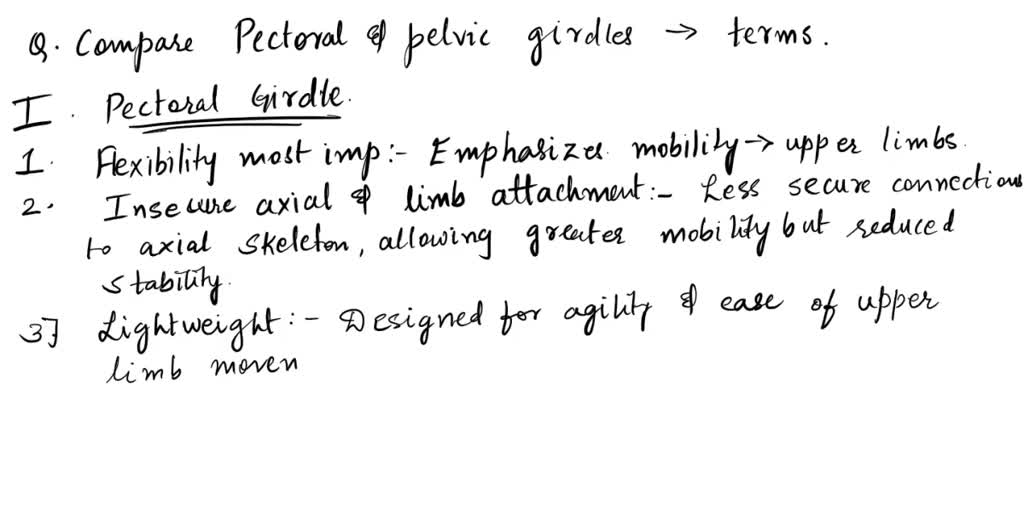 Q. Compare Pectoral & pelvic girdles → terms.
I. Pectoral Girdle.
1. Flexibility most imp:- Emphasizes mobility → upper limbs.
2. Insecure axial & limb attachment:- Less secure connections
to axial skeleton, allowing greater mobility but reduced
stability.
3] Lightweight:- Designed for agility & ease of upper
limb moven